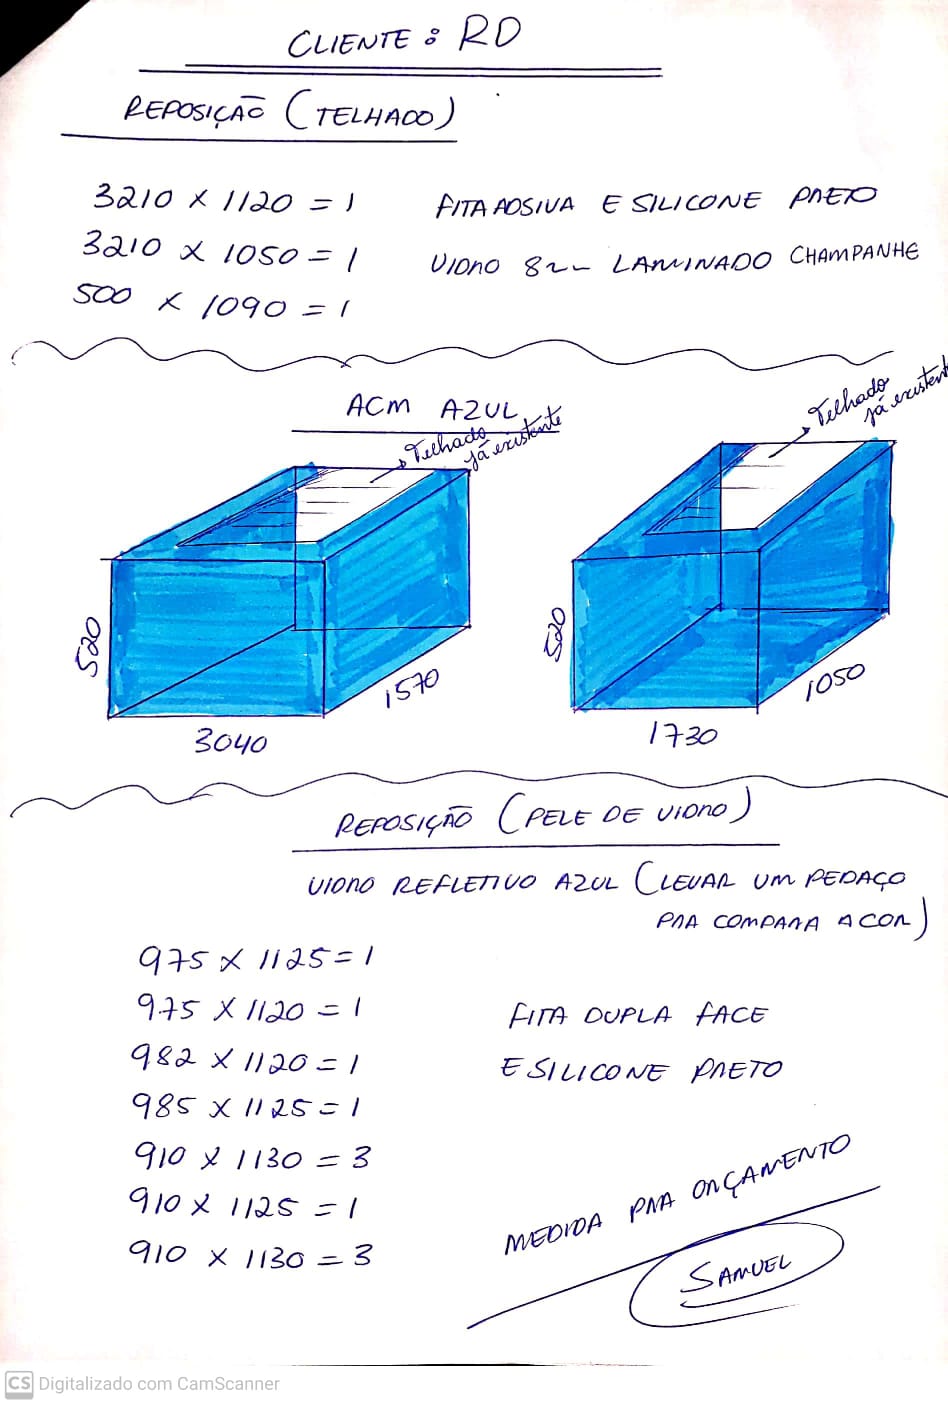 CLIENTE: RD
REPOSIÇÃO (TELHADO)
3210 X 1120 = 1
FITA ADSIVA E SILICONE PRETO
3210 X 1050 = 1
VIDRO 8mm LAMINADO CHAMPANHE
500 X 1090 = 1
ACM AZUL
Telhado
já existente
Telhado
já existente
520
3040
1570
520
1730
1050
REPOSIÇÃO (PELE DE VIDRO)
VIDRO REFLETIVO AZUL (LEVAR UM PEDAÇO
PRA COMPARA A COR)
975 X 1125 = 1
975 X 1120 = 1
982 X 1120 = 1
985 X 1125 = 1
910 X 1130 = 3
910 X 1125 = 1
910 X 1130 = 3
FITA DUPLA FACE
E SILICONE PRETO
MEDIDA PRA ORÇAMENTO
SAMUEL
CS Digitalizado com CamScanner